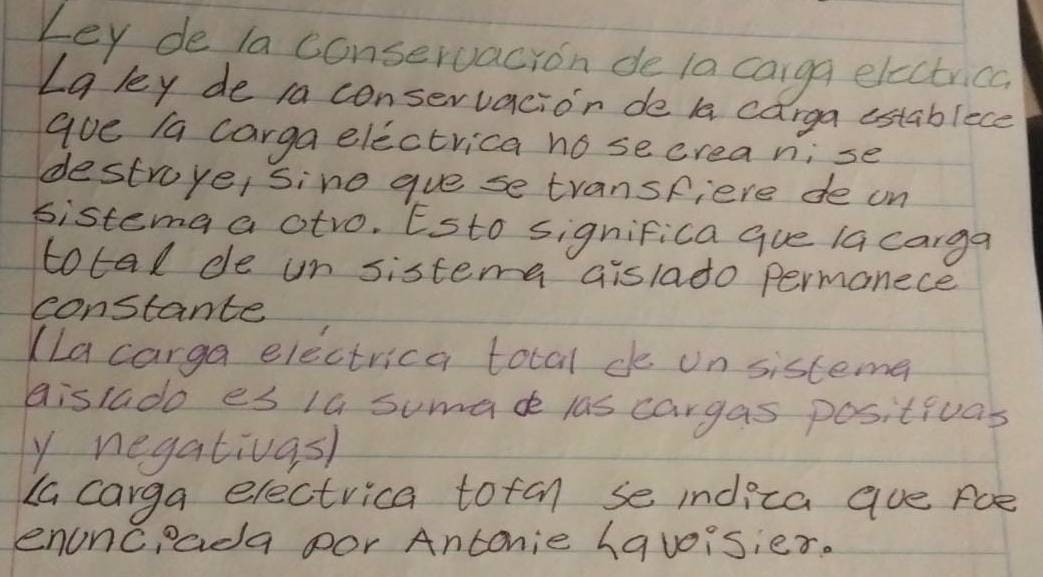 Ley de la conservación de la carga electrica
La ley de la conservación de la carga establece
que la carga eléctrica no se crea ni se
destroye, sino que se transfiere de un
sistema a otro. Esto significa que la carga
total de un sistema aislado permanece
constante
(La carga eléctrica total de un sistema
aislado es la suma de las cargas positivas
y negativas)
La carga electrica total se indica que fue
enunciada por Antonie Lavoisier.